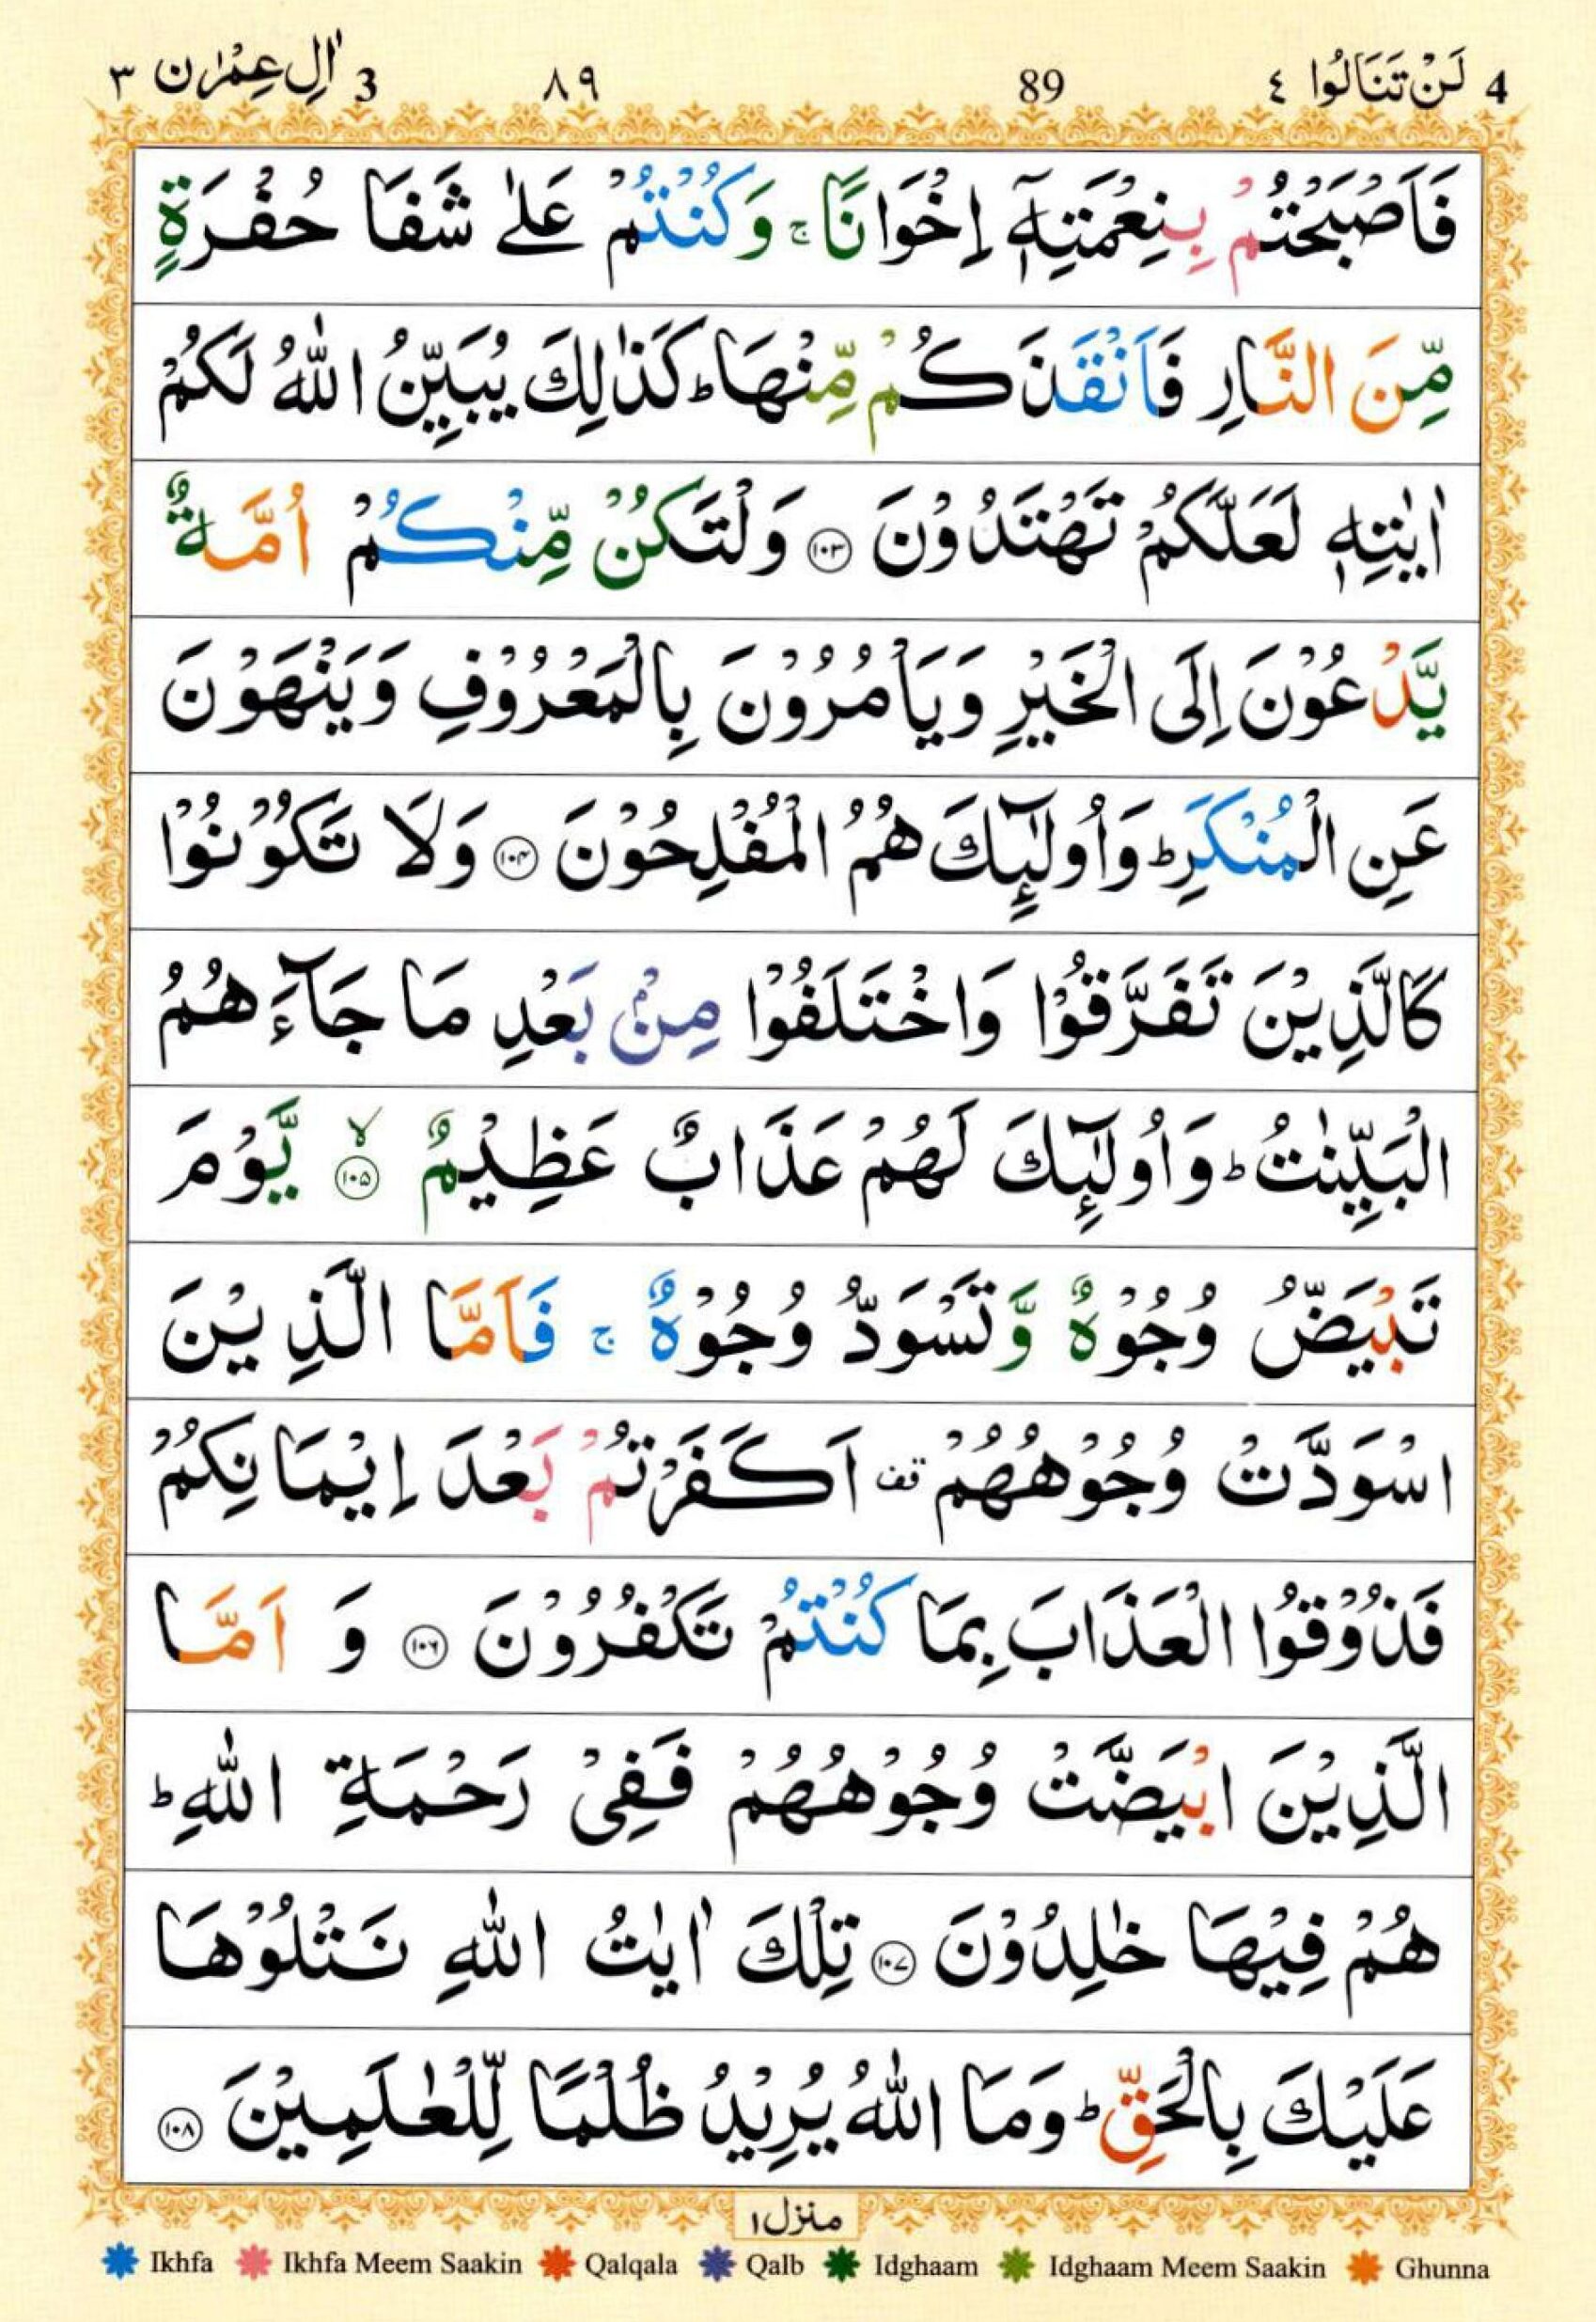 4 لَنْ تَنَالُوا ٤ 89 ٨٩ 3 اٰلِ عِمْرٰن ٣
فَاَصْبَحْتُمْ بِنِعْمَتِهٖٓ اِخْوَانًا ۚ وَكُنْتُمْ عَلٰى شَفَا حُفْرَةٍ
مِّنَ النَّارِ فَاَنْقَذَكُمْ مِّنْهَا ؕ كَذٰلِكَ يُبَيِّنُ اللّٰهُ لَكُمْ
اٰيٰتِهٖ لَعَلَّكُمْ تَهْتَدُوْنَ ۝۱۰۳ وَلْتَكُنْ مِّنْكُمْ اُمَّةٌ
يَّدْعُوْنَ اِلَى الْخَيْرِ وَيَاْمُرُوْنَ بِالْمَعْرُوْفِ وَيَنْهَوْنَ
عَنِ الْمُنْكَرِ ؕ وَاُولٰٓئِكَ هُمُ الْمُفْلِحُوْنَ ۝۱۰۴ وَلَا تَكُوْنُوْا
كَالَّذِيْنَ تَفَرَّقُوْا وَاخْتَلَفُوْا مِنْۢ بَعْدِ مَا جَآءَهُمُ
الْبَيِّنٰتُ ؕ وَاُولٰٓئِكَ لَهُمْ عَذَابٌ عَظِيْمٌ ۝۱۰۵ۙ يَّوْمَ
تَبْيَضُّ وُجُوْهٌ وَّتَسْوَدُّ وُجُوْهٌ ۚ فَاَمَّا الَّذِيْنَ
اسْوَدَّتْ وُجُوْهُهُمْ ۟ قف اَكَفَرْتُمْ بَعْدَ اِيْمَانِكُمْ
فَذُوْقُوا الْعَذَابَ بِمَا كُنْتُمْ تَكْفُرُوْنَ ۝۱۰۶ وَ اَمَّا
الَّذِيْنَ ابْيَضَّتْ وُجُوْهُهُمْ فَفِيْ رَحْمَةِ اللّٰهِ ؕ
هُمْ فِيْهَا خٰلِدُوْنَ ۝۱۰۷ تِلْكَ اٰيٰتُ اللّٰهِ نَتْلُوْهَا
عَلَيْكَ بِالْحَقِّ ؕ وَمَا اللّٰهُ يُرِيْدُ ظُلْمًا لِّلْعٰلَمِيْنَ ۝۱۰۸
منزل ۱
Ikhfa Ikhfa Meem Saakin Qalqala Qalb Idghaam Idghaam Meem Saakin Ghunna